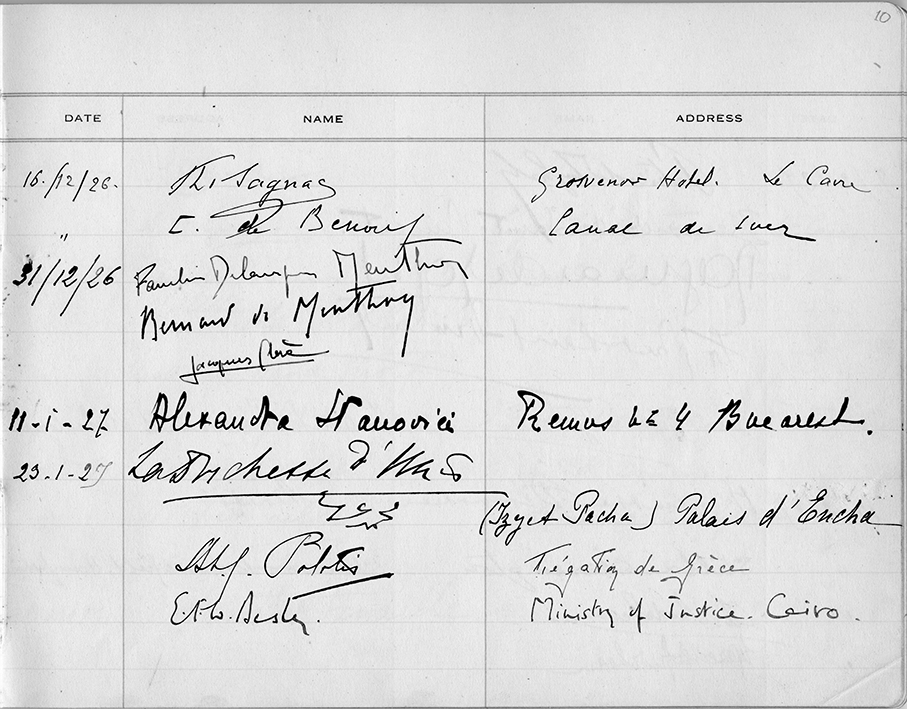 10
DATE NAME ADDRESS
16./12/26. Th. Sagnac Grosvenor Hotel. Le Caire
" C. de Benoist Canal de Suez
31/12/26 Menthon
Bernard de Menthon
Jacques
11-1-27 Alexandra Stanovici Remus 4 Bucarest.
23.1-27 La Duchesse d'Uzès
(Izzet Pacha) Palais d'Encha
Politis de Grèce
E.F.W. Besly. Ministry of Justice. Cairo.